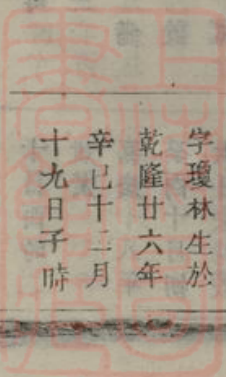 字瓊林生於
乾隆廿六年
辛巳十二月
十九日子時